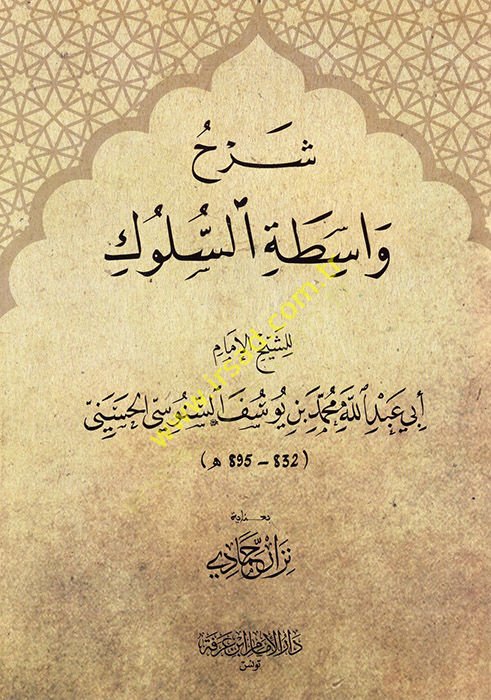 شَرْحُ
وَاسِطَةِ ٱلسُّلُوكِ
للشيخ الإمام
أبي عبد الله محمد بن يوسف السنوسي الحسيني
(832 - 895 ه)
بعناية
نزار حمادي
دار الإمام ابن عرفة
تونس